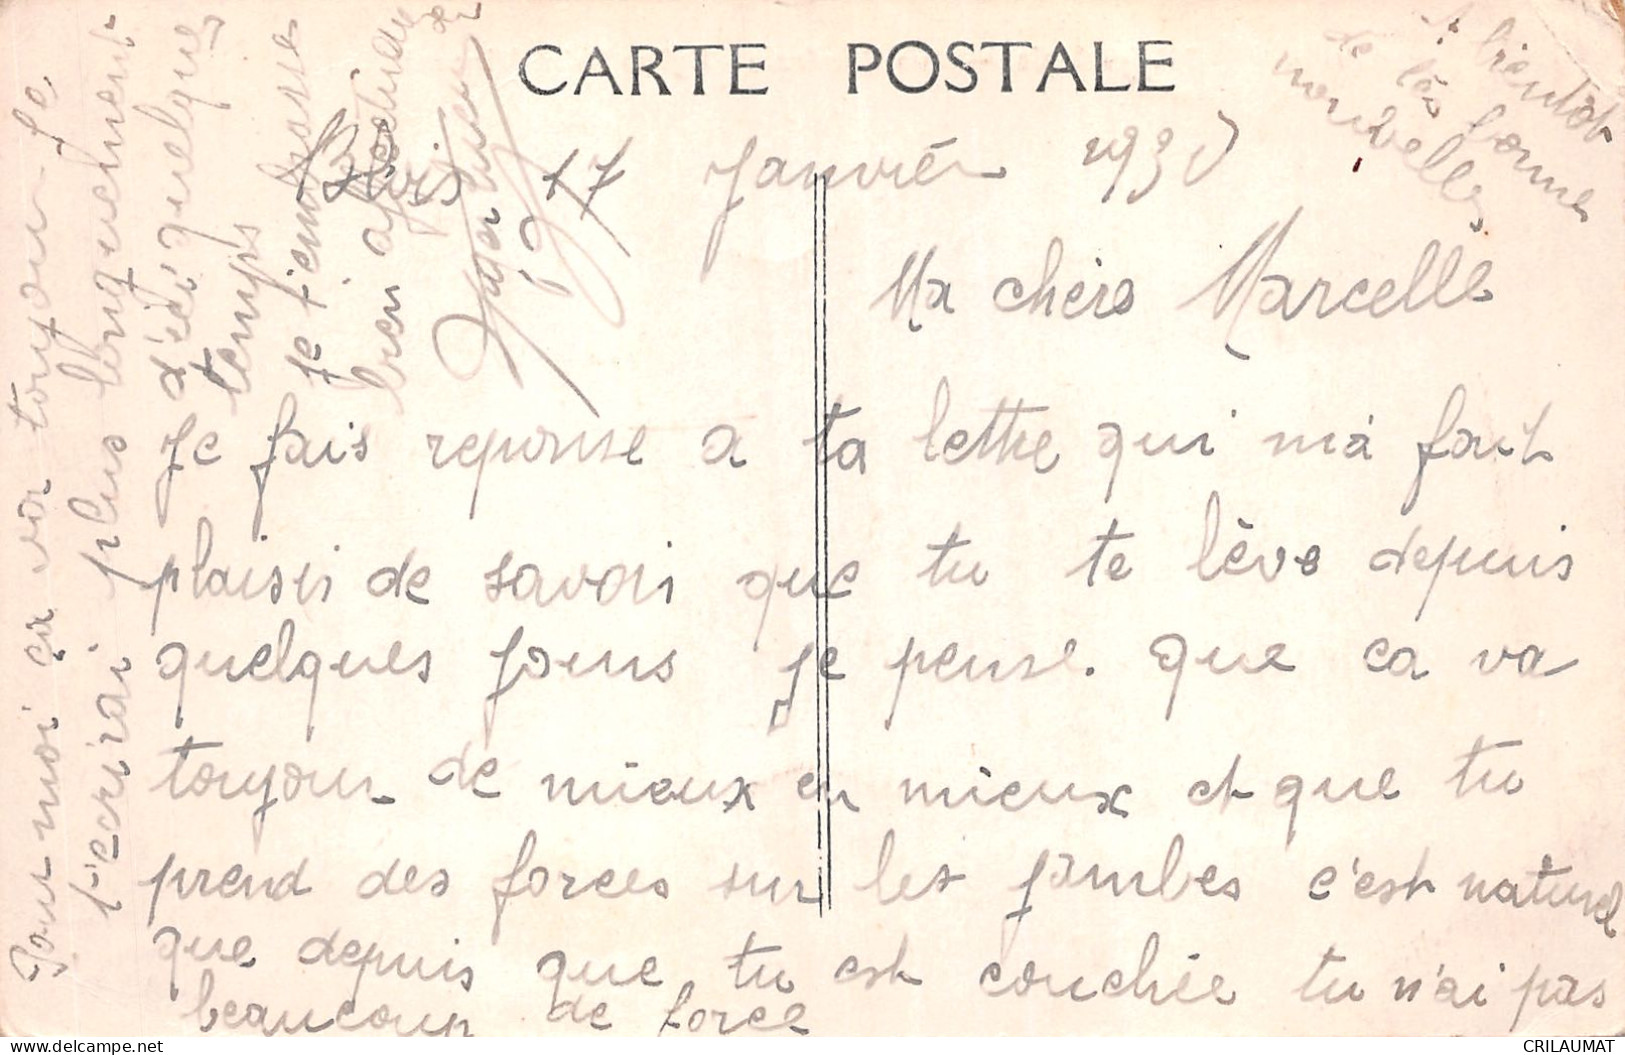 CARTE POSTALE
Blois 17 Janvier 193
Ma chère Marcelle
Je fais reponse a ta lettre qui m'a fait
plaisir de savoir que tu te lève depuis
quelques jours je pense. que ca va
toujour de mieux en mieux et que tu
prend des forces sur les jambes c'est naturel
que depuis que tu est couchée tu n'ai pas
beaucoup de force
Pour moi ça va toujour Je
t-ecrirai plus longuement
d'ici quelque
temps
Je t-embrasse
bien affectueux
A bientôt
de tes bonne
nouvelles
CRILAUMAT